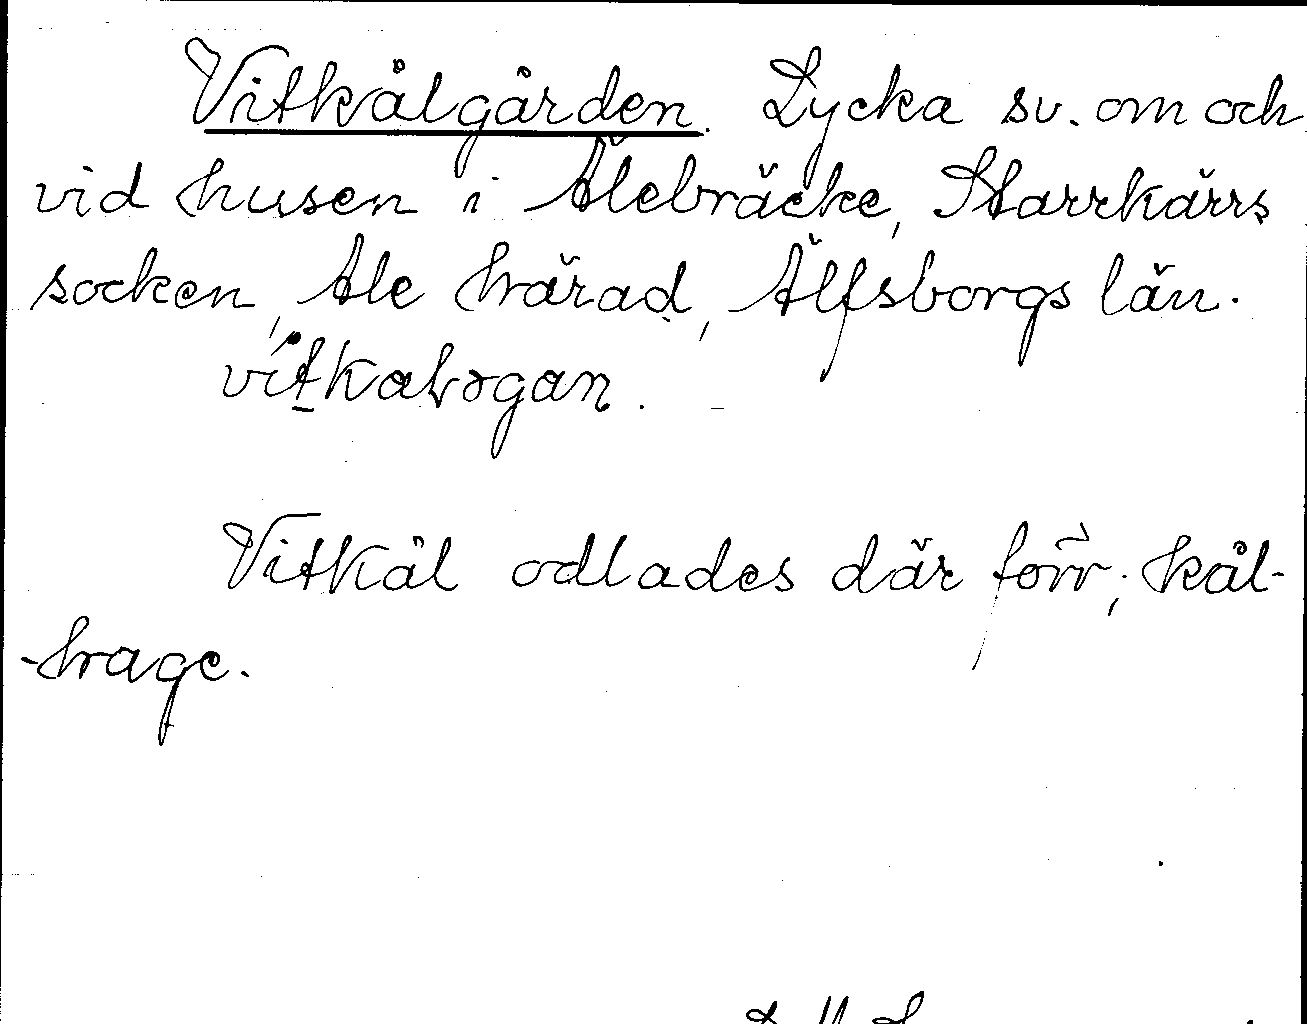 Vitkålgården. Lycka sv. om och
vid husen i Alebräcke, Starrkärrs
socken, Ale härad, Älfsborgs län.
Vitkål odlades där förr; kål-
-hage.